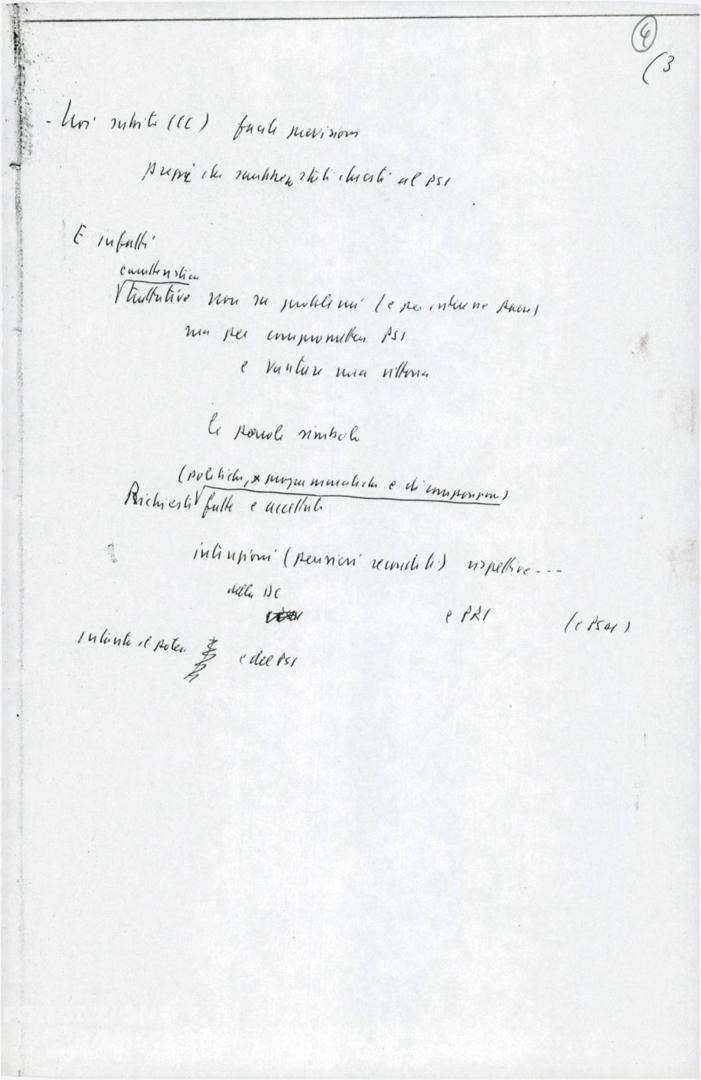 4
(3
- Noi subito (CC) facile previsione
prezzi che sarebbero stati chiesti al PSI
E infatti
caratteristica
trattative non su problemi (e per interesse Paese)
ma per compromettere PSI
e vantare una vittoria
le parole simbolo
(politiche, programmatiche e di composizione)
Richieste fatte e accettate
intenzioni (pensieri reconditi) rispettive ---
della DC
e PRI (e PSDI)
Intanto il potere e del PSI